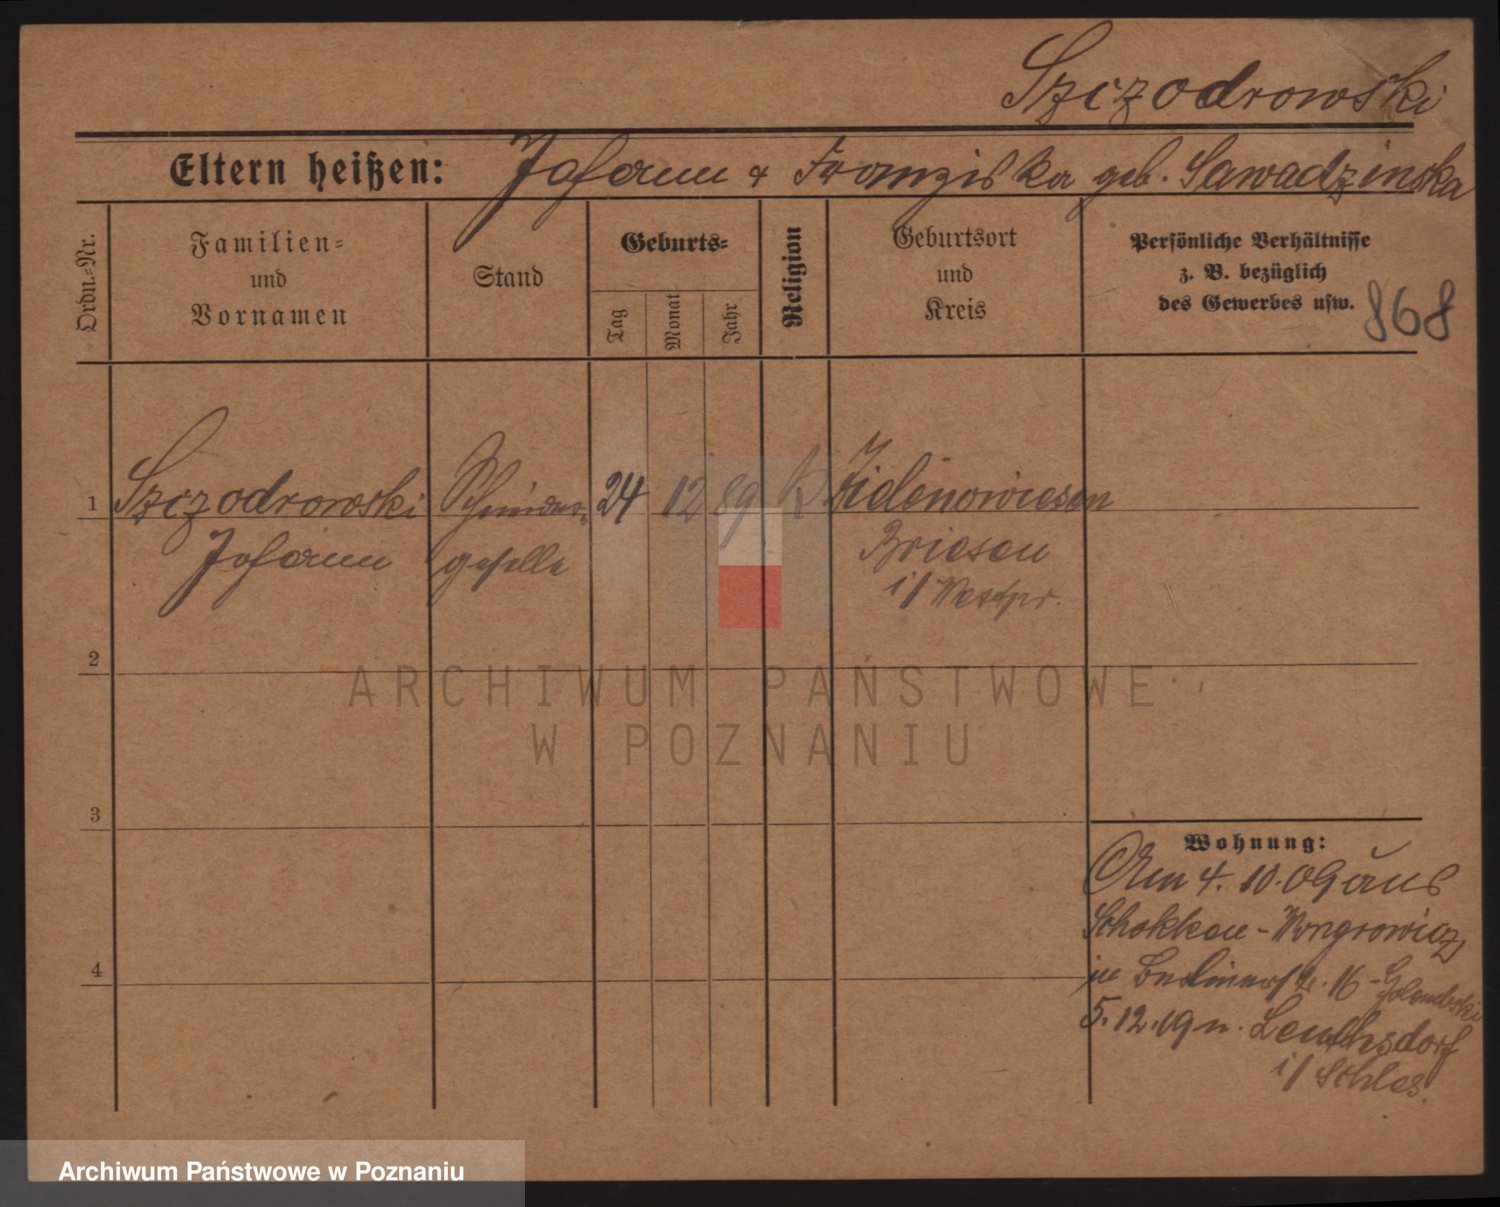 Szczodrowski
Eltern heißen: Johann & Franziska geb. Sawadzinska
Ordn.=Nr.
Familien=
und
Vornamen
Stand
Geburts=
Tag
Monat
Jahr
Religion
Geburtsort
und
Kreis
Persönliche Verhältnisse
z. B. bezüglich
des Gewerbes usw.
868
1 Szczodrowski Schneider- 24 12 89 K
Johann geselle Briesen
i/ Westpr.
2
3
4
Wohnung:
Am 4. 10. 09 aus
Schokken - Wongrowicz
in Berlinerstr. 16 - Golembeski
5. 12. 09 n.
i/ Schles.
ARCHIWUM PAŃSTWOWE
W POZNANIU
Archiwum Państwowe w Poznaniu